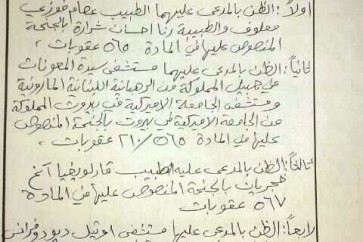 اولاً: الظن بالمدعى عليهما الطبيب عصام فوزي
معلوف والطبيبة رنا احسان شرارة بالجنحة
المنصوص عليها في المادة ٥٦٥ عقوبات.
ثانياً: الظن بالمدعى عليهما مستشفى سيدة المعونات
في جبيل المملوكة من الرهبانية اللبنانية المارونية
ومستشفى الجامعة الاميركية في بيروت المملوكة
من الجامعة الاميركية في بيروت بالجنحة المنصوص
عليها في المادة ٥٦٥/٢١٠ عقوبات.
ثالثاً: الظن بالمدعى عليه الطبيب
بالجنحة المنصوص عليها في المادة
٥٦٧ عقوبات
رابعاً: الظن بالمدعى عليها مستشفى اوتيل ديو دو فرانس